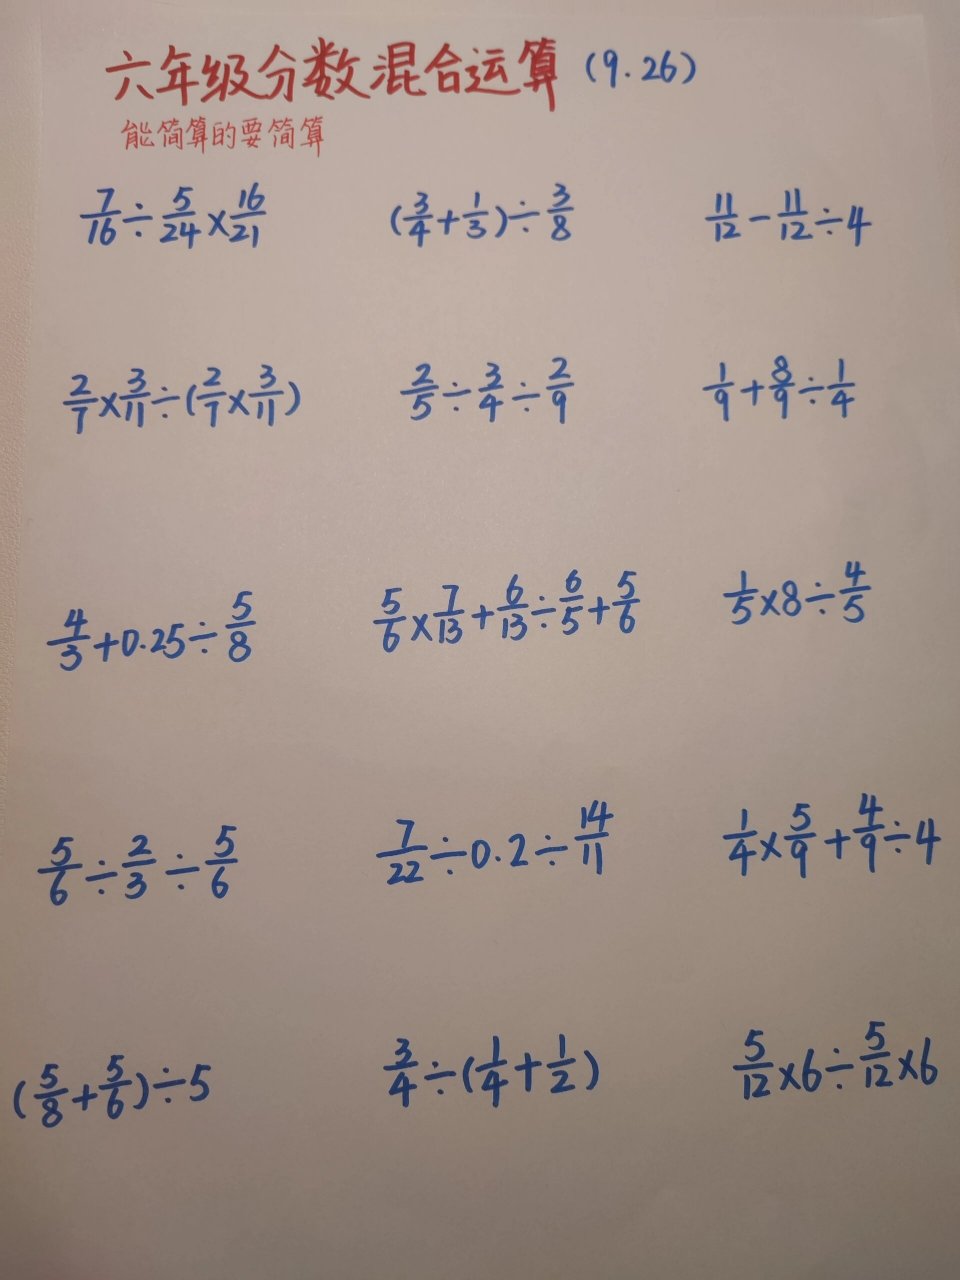 六年级分数混合运算 (9.26)
能简算的要简算
7/16÷5/24×16/21 (3/4+1/3)÷3/8 11/12-11/12÷4
2/7×3/11÷(2/7×3/11) 2/5÷3/4÷2/9 1/9+8/9÷1/4
4/3+0.25÷5/8 5/6×7/13+6/13÷6/5+5/6 1/5×8÷4/5
5/6÷2/3÷5/6 7/22÷0.2÷14/11 1/4×5/9+4/9÷4
(5/8+5/6)÷5 3/4÷(1/4+1/2) 5/12×6÷5/12×6